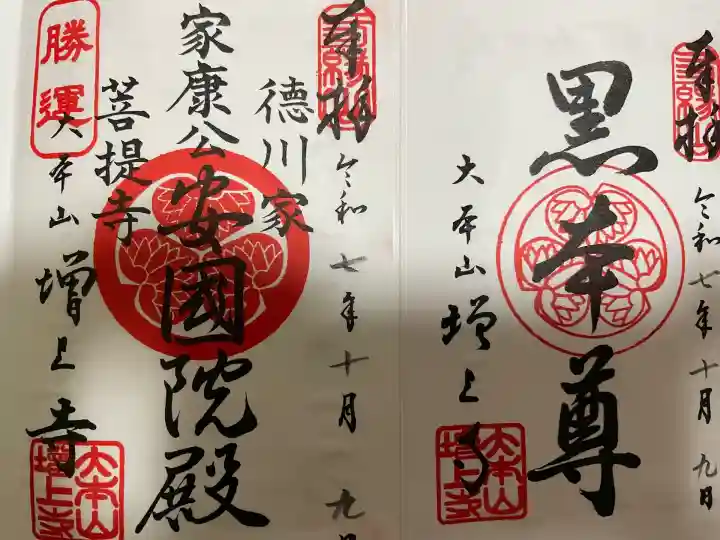 奉拝
令和七年十月九日
黒本尊
大本山
増上寺
大本山
増上寺
奉拝
令和七年十月一九日
徳川家
家康公安國院殿
菩提寺
勝運
大本山
増上寺
大本山
増上寺